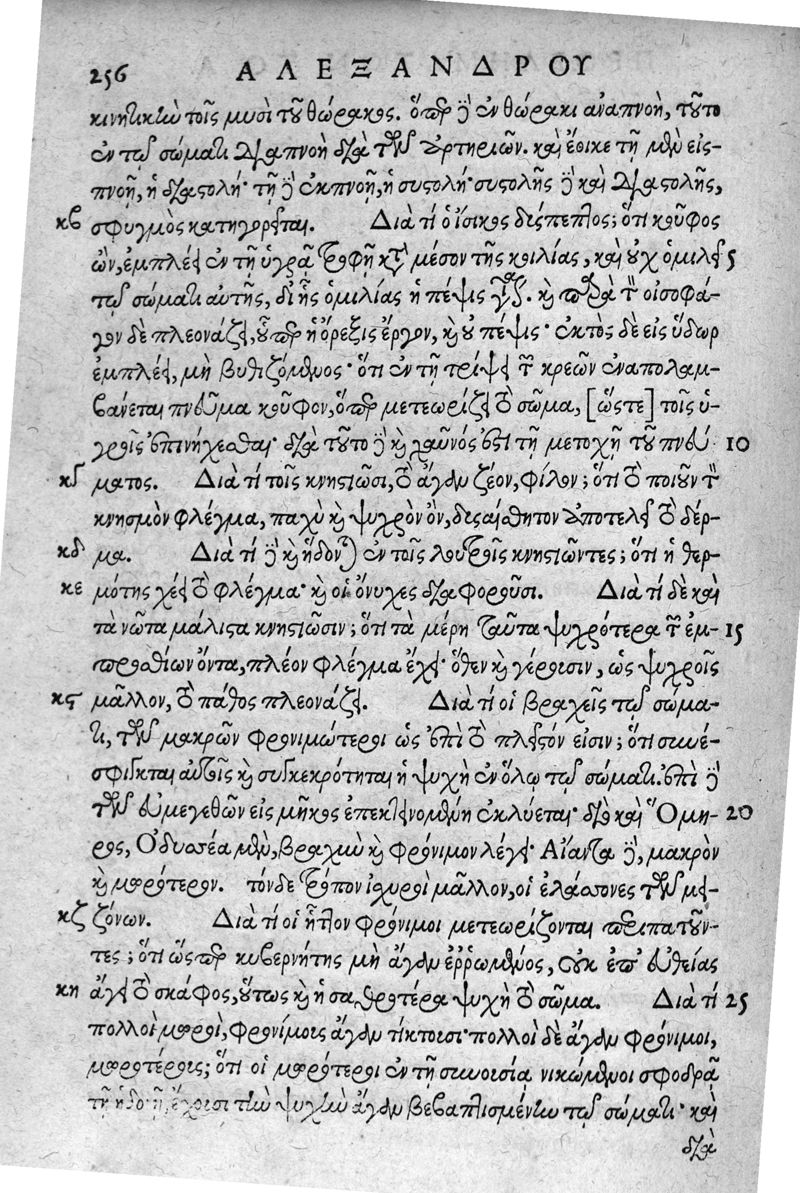 256 ΑΛΕΞΑΝΔΡΟΥ
κινητικὴν τοῖς μυσὶ τοῦ θώρακος. ὅπερ δὲ ἐν θώρακι ἀναπνοὴ, τοῦτο
ἐν τῷ σώματι διαπνοὴ διὰ τῶν ἀρτηριῶν. καὶ ἔοικε τῇ μὲν εἰς-
πνοῇ, ἡ διαστολή· τῇ δὲ ἐκπνοῇ, ἡ συστολή· συστολῆς δὲ καὶ διαστολῆς,
κβ σφυγμὸς κατηγορεῖται. Διὰ τί ὁ ἴσικος δύσπεπτος; ὅτι κοῦφος
ὢν, ἐμπλέει ἐν τῇ ὑγρᾷ τροφῇ κατὰ μέσον τῆς κοιλίας, καὶ οὐχ ὁμιλεῖ 5
τῷ σώματι αὐτῆς, δι' ἧς ὁμιλίας ἡ πέψις γίνεται. καὶ παρὰ τὸν οἰσοφά-
γον δὲ πλεονάζει, οὗπερ ἡ ὄρεξις ἔργον, καὶ οὐ πέψις· ἐκτὸς δὲ εἰς ὕδωρ
ἐμπλέει, μὴ βυθιζόμενος· ὅτι ἐν τῇ τρίψει τῶν κρεῶν ἐναπολαμ-
βάνεται πνεῦμα κοῦφον, ὅπερ μετεωρίζει τὸ σῶμα, [ὥστε] τοῖς ὑ-
γροῖς ἐπινήχεσθαι· διὰ τοῦτο δὲ καὶ χαῦνός ἐστι τῇ μετοχῇ τοῦ πνεύ- 10
κγ ματος. Διὰ τί τοῖς κνησιῶσι, τὸ ἄγαν ζέον, φίλον; ὅτι τὸ ποιοῦν τὸν
κνησμὸν φλέγμα, παχὺ καὶ ψυχρὸν ὂν, δυσαίσθητον ἀποτελεῖ τὸ δέρ-
κδ μα. Διὰ τί δὲ καὶ ἥδονται ἐν τοῖς λουτροῖς κνησιῶντες; ὅτι ἡ θερ-
κε μότης χέει τὸ φλέγμα· καὶ οἱ ὄνυχες διαφοροῦσι. Διὰ τί δὲ καὶ
τὰ νῶτα μάλιστα κνησιῶσιν; ὅτι τὰ μέρη ταῦτα ψυχρότερα τῶν ἐμ- 15
προσθίων ὄντα, πλέον φλέγμα ἔχει· ὅθεν καὶ γέρουσιν, ὡς ψυχροῖς
κϛ μᾶλλον, τὸ πάθος πλεονάζει. Διὰ τί οἱ βραχεῖς τῷ σώμα-
τι, τῶν μακρῶν φρονιμώτεροι ὡς ἐπὶ τὸ πλεῖστόν εἰσιν; ὅτι συνέ-
σφιγκται αὐτοῖς καὶ συγκεκρότηται ἡ ψυχὴ ἐν ὅλῳ τῷ σώματι. ἐπὶ δὲ
τῶν εὐμεγεθῶν εἰς μῆκος ἐπεκτεινομένη ἐκλύεται· διὸ καὶ Ὅμη- 20
ρος, Ὀδυσσέα μὲν, βραχὺν καὶ φρόνιμον λέγει· Αἴαντα δὲ, μακρὸν
καὶ μωρότερον. τόνδε τρόπον ἰσχυροὶ μᾶλλον, οἱ ἐλάσσονες τῶν μει-
κζ ζόνων. Διὰ τί οἱ ἧττον φρόνιμοι μετεωρίζονται περιπατοῦν-
τες; ὅτι ὥσπερ κυβερνήτης μὴ ἄγαν ἐῤῥωμένος, οὐκ ἐπ' εὐθείας
κη ἄγει τὸ σκάφος, οὕτως καὶ ἡ σαθροτέρα ψυχὴ τὸ σῶμα. Διὰ τί 25
πολλοὶ μωροὶ, φρονίμους ἄγαν τίκτουσι· πολλοὶ δὲ ἄγαν φρόνιμοι,
μωροτέρους; ὅτι οἱ μωρότεροι ἐν τῇ συνουσίᾳ νικώμενοι σφοδρᾷ
τῇ ἡδονῇ, ἔχουσι τὴν ψυχὴν ἄγαν βεβαπτισμένην τῷ σώματι· καὶ
διὰ